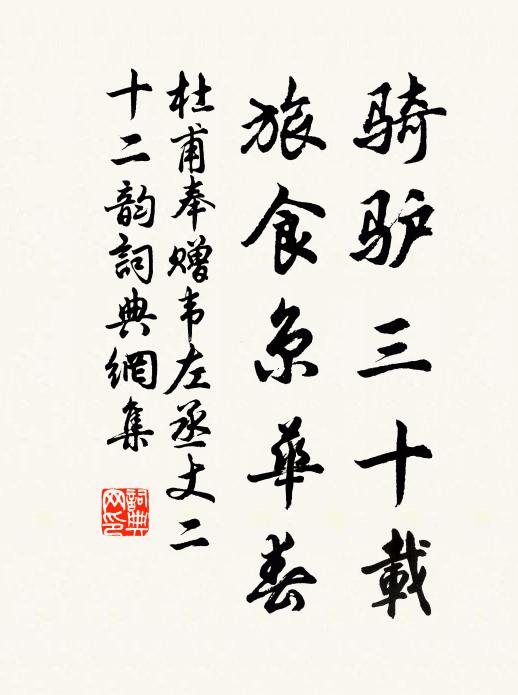 骑驴三十載
旅食京華春
杜甫奉赠韦左丞丈二
十二韵詞典網集
詞典网印